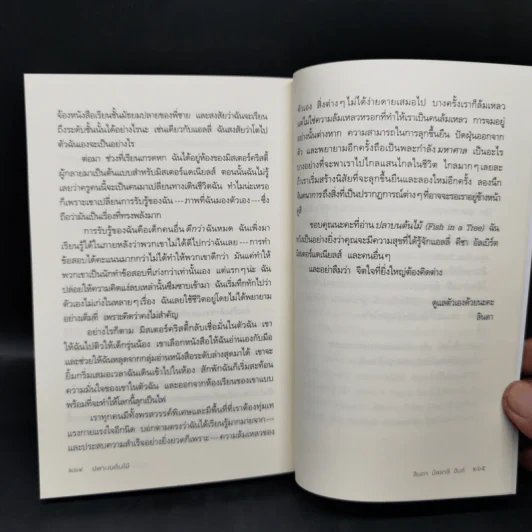 จ้องหนังสือเรียนชั้นมัธยมปลายของพี่ชาย และสงสัยว่าฉันจะเรียน
ถึงระดับชั้นนั้นได้อย่างไรนะ เช่นเดียวกับแอลลี่ ฉันสงสัยว่าโตไป
ตัวฉันเองจะเป็นอย่างไร
ต่อมา ช่วงที่เรียนเกรดหก ฉันได้อยู่ห้องของมิสเตอร์คริสตี้
ผู้กลายมาเป็นต้นแบบสำหรับมิสเตอร์แดเนียลส์ ตอนนั้นฉันไม่รู้
เลยว่าครูคนนี้จะเป็นคนมาเปลี่ยนทางเดินชีวิตฉัน ทำไมน่ะเหรอ
ก็เพราะเขาเปลี่ยนการรับรู้ของฉัน---ภาพที่ฉันมองตัวเอง---ซึ่ง
ถือว่ามันเป็นเรื่องที่ทรงพลังมาก
การรับรู้ของฉันคือเด็กคนอื่น ดีกว่าฉันหมด ฉันเพิ่งมา
เรียนรู้ได้ในภายหลังว่าพวกเขาไม่ได้ดีไปกว่าฉันเลย---การทำ
ข้อสอบได้คะแนนมากกว่าไม่ได้ทำให้พวกเขาดีกว่า มันแค่ทำให้
พวกเขาเป็นนักทำข้อสอบที่เก่งกว่าเท่านั้นเอง แต่แรกๆน่ะ ฉัน
ปล่อยให้ความคิดแง่ลบเหล่านั้นซึมซาบเข้ามา ฉันเริ่มทึกทักไปว่า
ตัวเองไม่เก่งในหลายๆเรื่อง ฉันเลยใช้ชีวิตอยู่โดยไม่ได้พยายาม
อย่างเต็มที่ เพราะคิดว่าคงไม่สำคัญ
อย่างไรก็ตาม มิสเตอร์คริสตี้กลับเชื่อมั่นในตัวฉัน เขา
ให้ฉันไปติวให้เด็กรุ่นน้อง เขาเลือกหนังสือให้ฉันอ่านเองกับมือ
และช่วยให้ฉันหลุดจากกลุ่มอ่านหนังสือระดับล่างสุดมาได้ เขาจะ
ยิ้มกริ่มเสมอเวลาฉันเดินเข้าไปในห้อง สักพักฉันก็เริ่มสะท้อน
ความมั่นใจของเขาในตัวฉัน และออกจากห้องเรียนของเขาแบบ
พร้อมที่จะทำให้โลกนี้ลุกเป็นไฟ
เราทุกคนมีทั้งพรสวรรค์พิเศษและมีพื้นที่ที่เราต้องทุ่มเท
แรงกายแรงใจอีกนิด บอกตามตรงว่าฉันได้เรียนรู้มากมายจาก---
และประสบความสำเร็จอย่างยิ่งยวดก็เพราะ---ความล้มเหลวของ
๒๘๔ ปลาบนต้นไม้
ตัวเอง สิ่งต่างๆไม่ได้ง่ายดายเสมอไป บางครั้งเราก็ล้มเหลว
แต่ไม่ใช่ความล้มเหลวหรอกที่ทำให้เราเป็นคนล้มเหลว การจมอยู่
อย่างนั้นต่างหาก ความสามารถในการลุกขึ้นยืน ปัดฝุ่นออกจาก
ตัว และพยายามอีกครั้งถือเป็นพละกำลังมหาศาล เป็นอะไร
บางอย่างที่จะพาเราไปไกลแสนไกลในชีวิต ไกลมากๆเลยละ
ถ้าเราเริ่มสร้างนิสัยที่จะลุกขึ้นยืนและลองใหม่อีกครั้ง ลองนึก
จินตนาการถึงสิ่งที่เป็นปรากฏการณ์ต่างๆที่อาจจะรอเราอยู่ข้างหน้า
ดูสิ
ขอบคุณนะคะที่อ่าน ปลาบนต้นไม้ (Fish in a Tree) ฉัน
หวังเป็นอย่างยิ่งว่าคุณจะมีความสุขที่ได้รู้จักแอลลี่ คีชา อัลเบิร์ต
มิสเตอร์แดเนียลส์ และคนอื่นๆ
และอย่าลืมว่า จิตใจที่ยิ่งใหญ่ต้องคิดต่าง
ดูแลตัวเองด้วยนะคะ
ลินดา
ลินดา มัลลาลี ฮันต์ ๒๘๕